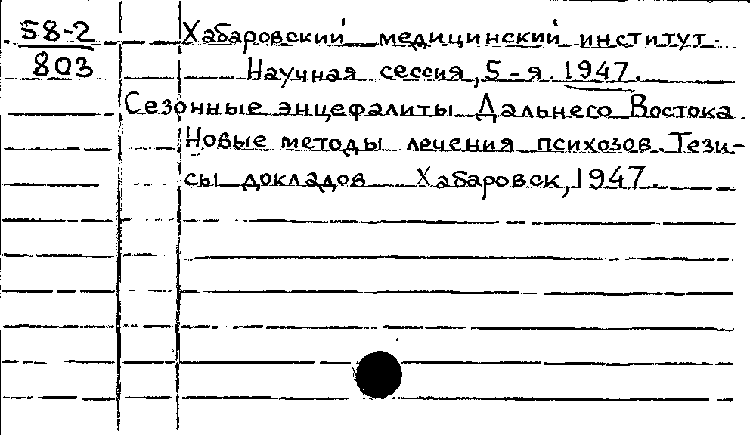 58-2
803
Хабаровский медицинский институт.
Научная сессия, 5-я. 1947.
Сезонные энцефалиты Дальнего Востока.
Новые методы лечения психозов. Тези-
сы докладов Хабаровск, 1947.